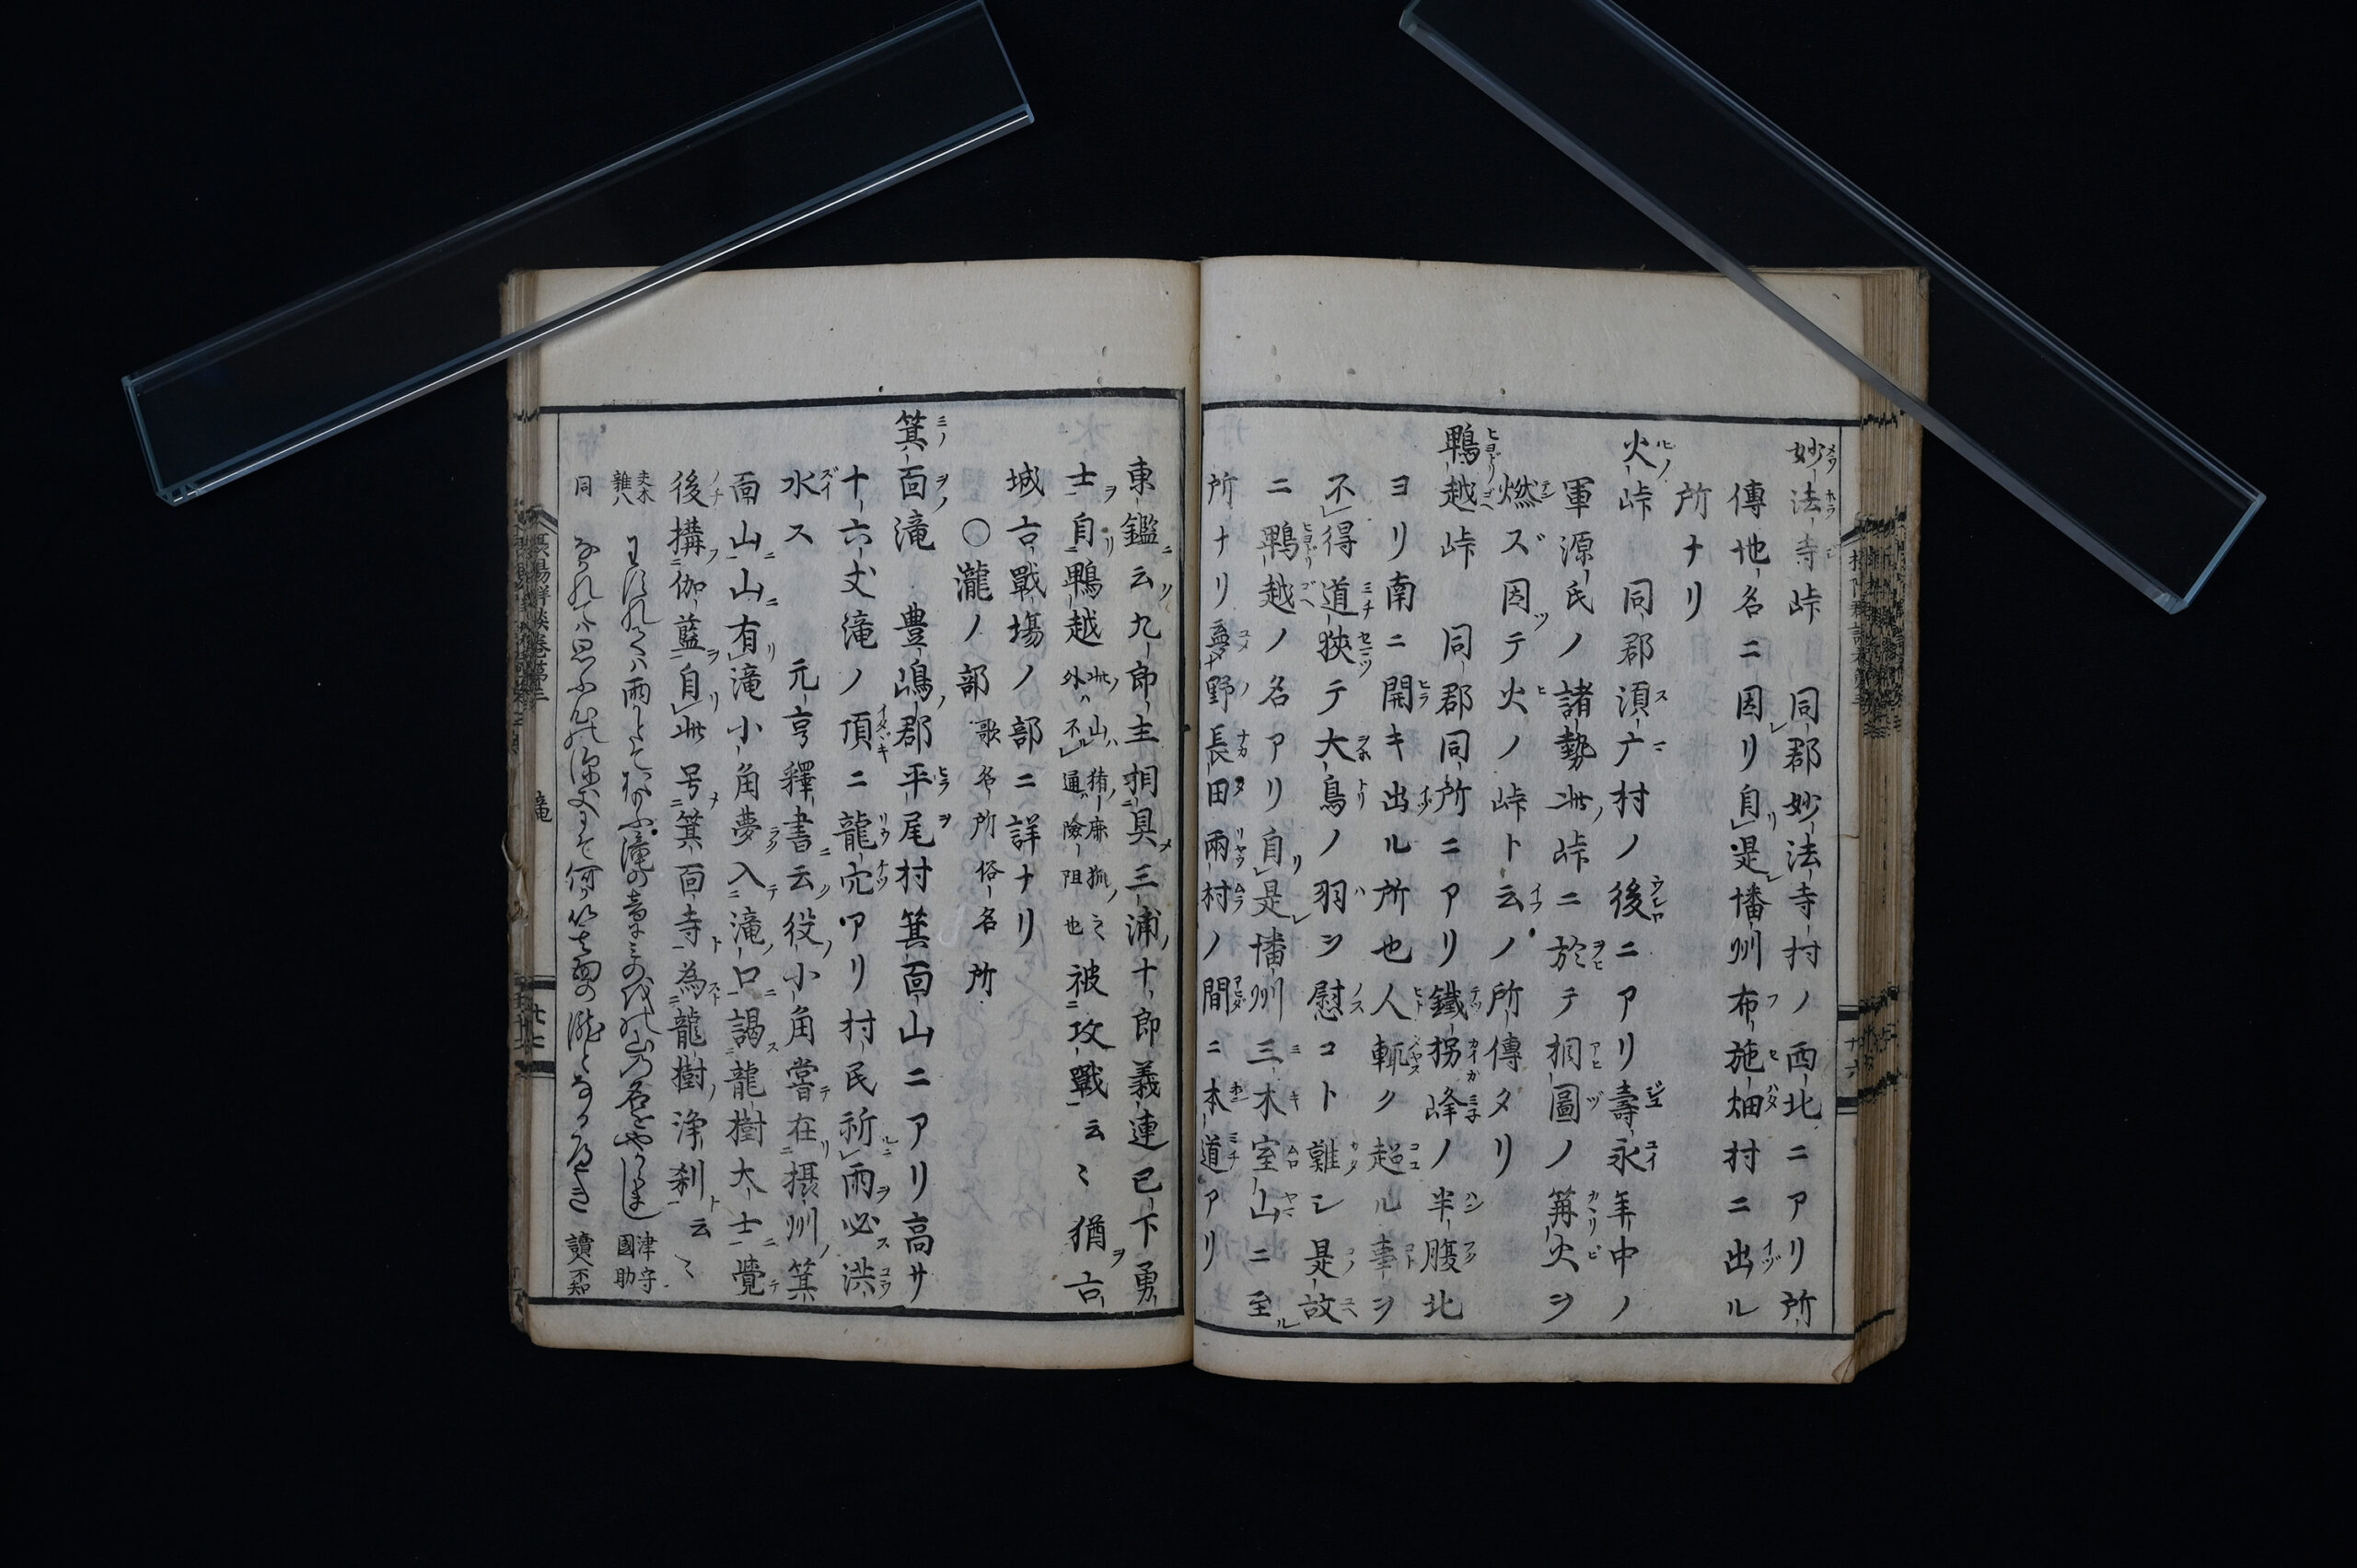 妙法寺峠　同郡妙法寺村ノ西北ニアリ所
傳地名ニ因リ自是播州布施畑村ニ出ル
所ナリ
火峠　同郡須广村ノ後ニアリ壽永年中ノ
軍源氏ノ諸勢此峠ニ於テ相圖ノ篝火ヲ
燃ズ因テ火ノ峠ト云ノ所傳タリ
鵯越峠　同郡同所ニアリ鐵拐峰ノ半腹北
ヨリ南ニ開キ出ル所也人輒ク超ル事ヲ
不得道狹テ大鳥ノ羽ヲ慰コト難シ是故
ニ鵯越ノ名アリ自是播州三木室山ニ至
所ナリ野長田兩村ノ間ニ本道アリ
東鑑云九郎主相具三浦十郎義連已下勇
士自鵯越此山猪鹿狐之外不通險阻也被攻戰云〻猶古
城古戰場ノ部ニ詳ナリ
○瀧ノ部 歌名所 俗名所
箕面滝　豊嶋郡平尾村箕面山ニアリ高サ
十六丈滝ノ頂ニ龍穴アリ村民祈雨必洪
水ス　元亨釋書云役小角嘗在摂州箕
面山山有滝小角夢入滝口謁龍樹大士覺
後搆伽藍自此号箕面寺為龍樹浄刹云〻
夫木雜八 津守國助
同 讀人不知
滝